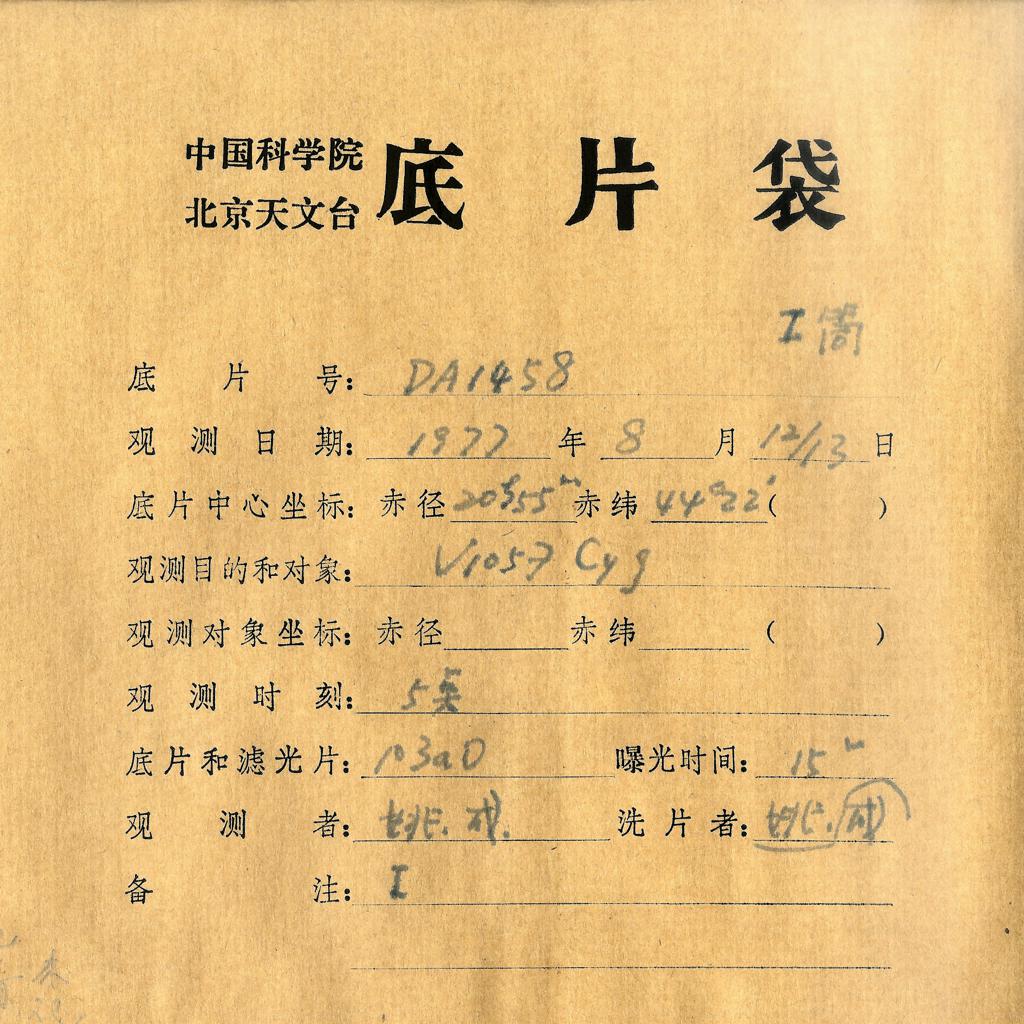 中国科学院
北京天文台 底片袋
I
底片号: DA1458
观测日期: 1977 年 8 月 12/13 日
底片中心坐标: 赤径 20h55m 赤纬 44°22′ ( )
观测目的和对象: V1057 Cyg
观测对象坐标: 赤径 赤纬 ( )
观测时刻: 5
底片和滤光片: 103aO 曝光时间: 15m
观测者: 姚. 成. 洗片者: 姚. 成
备注: I